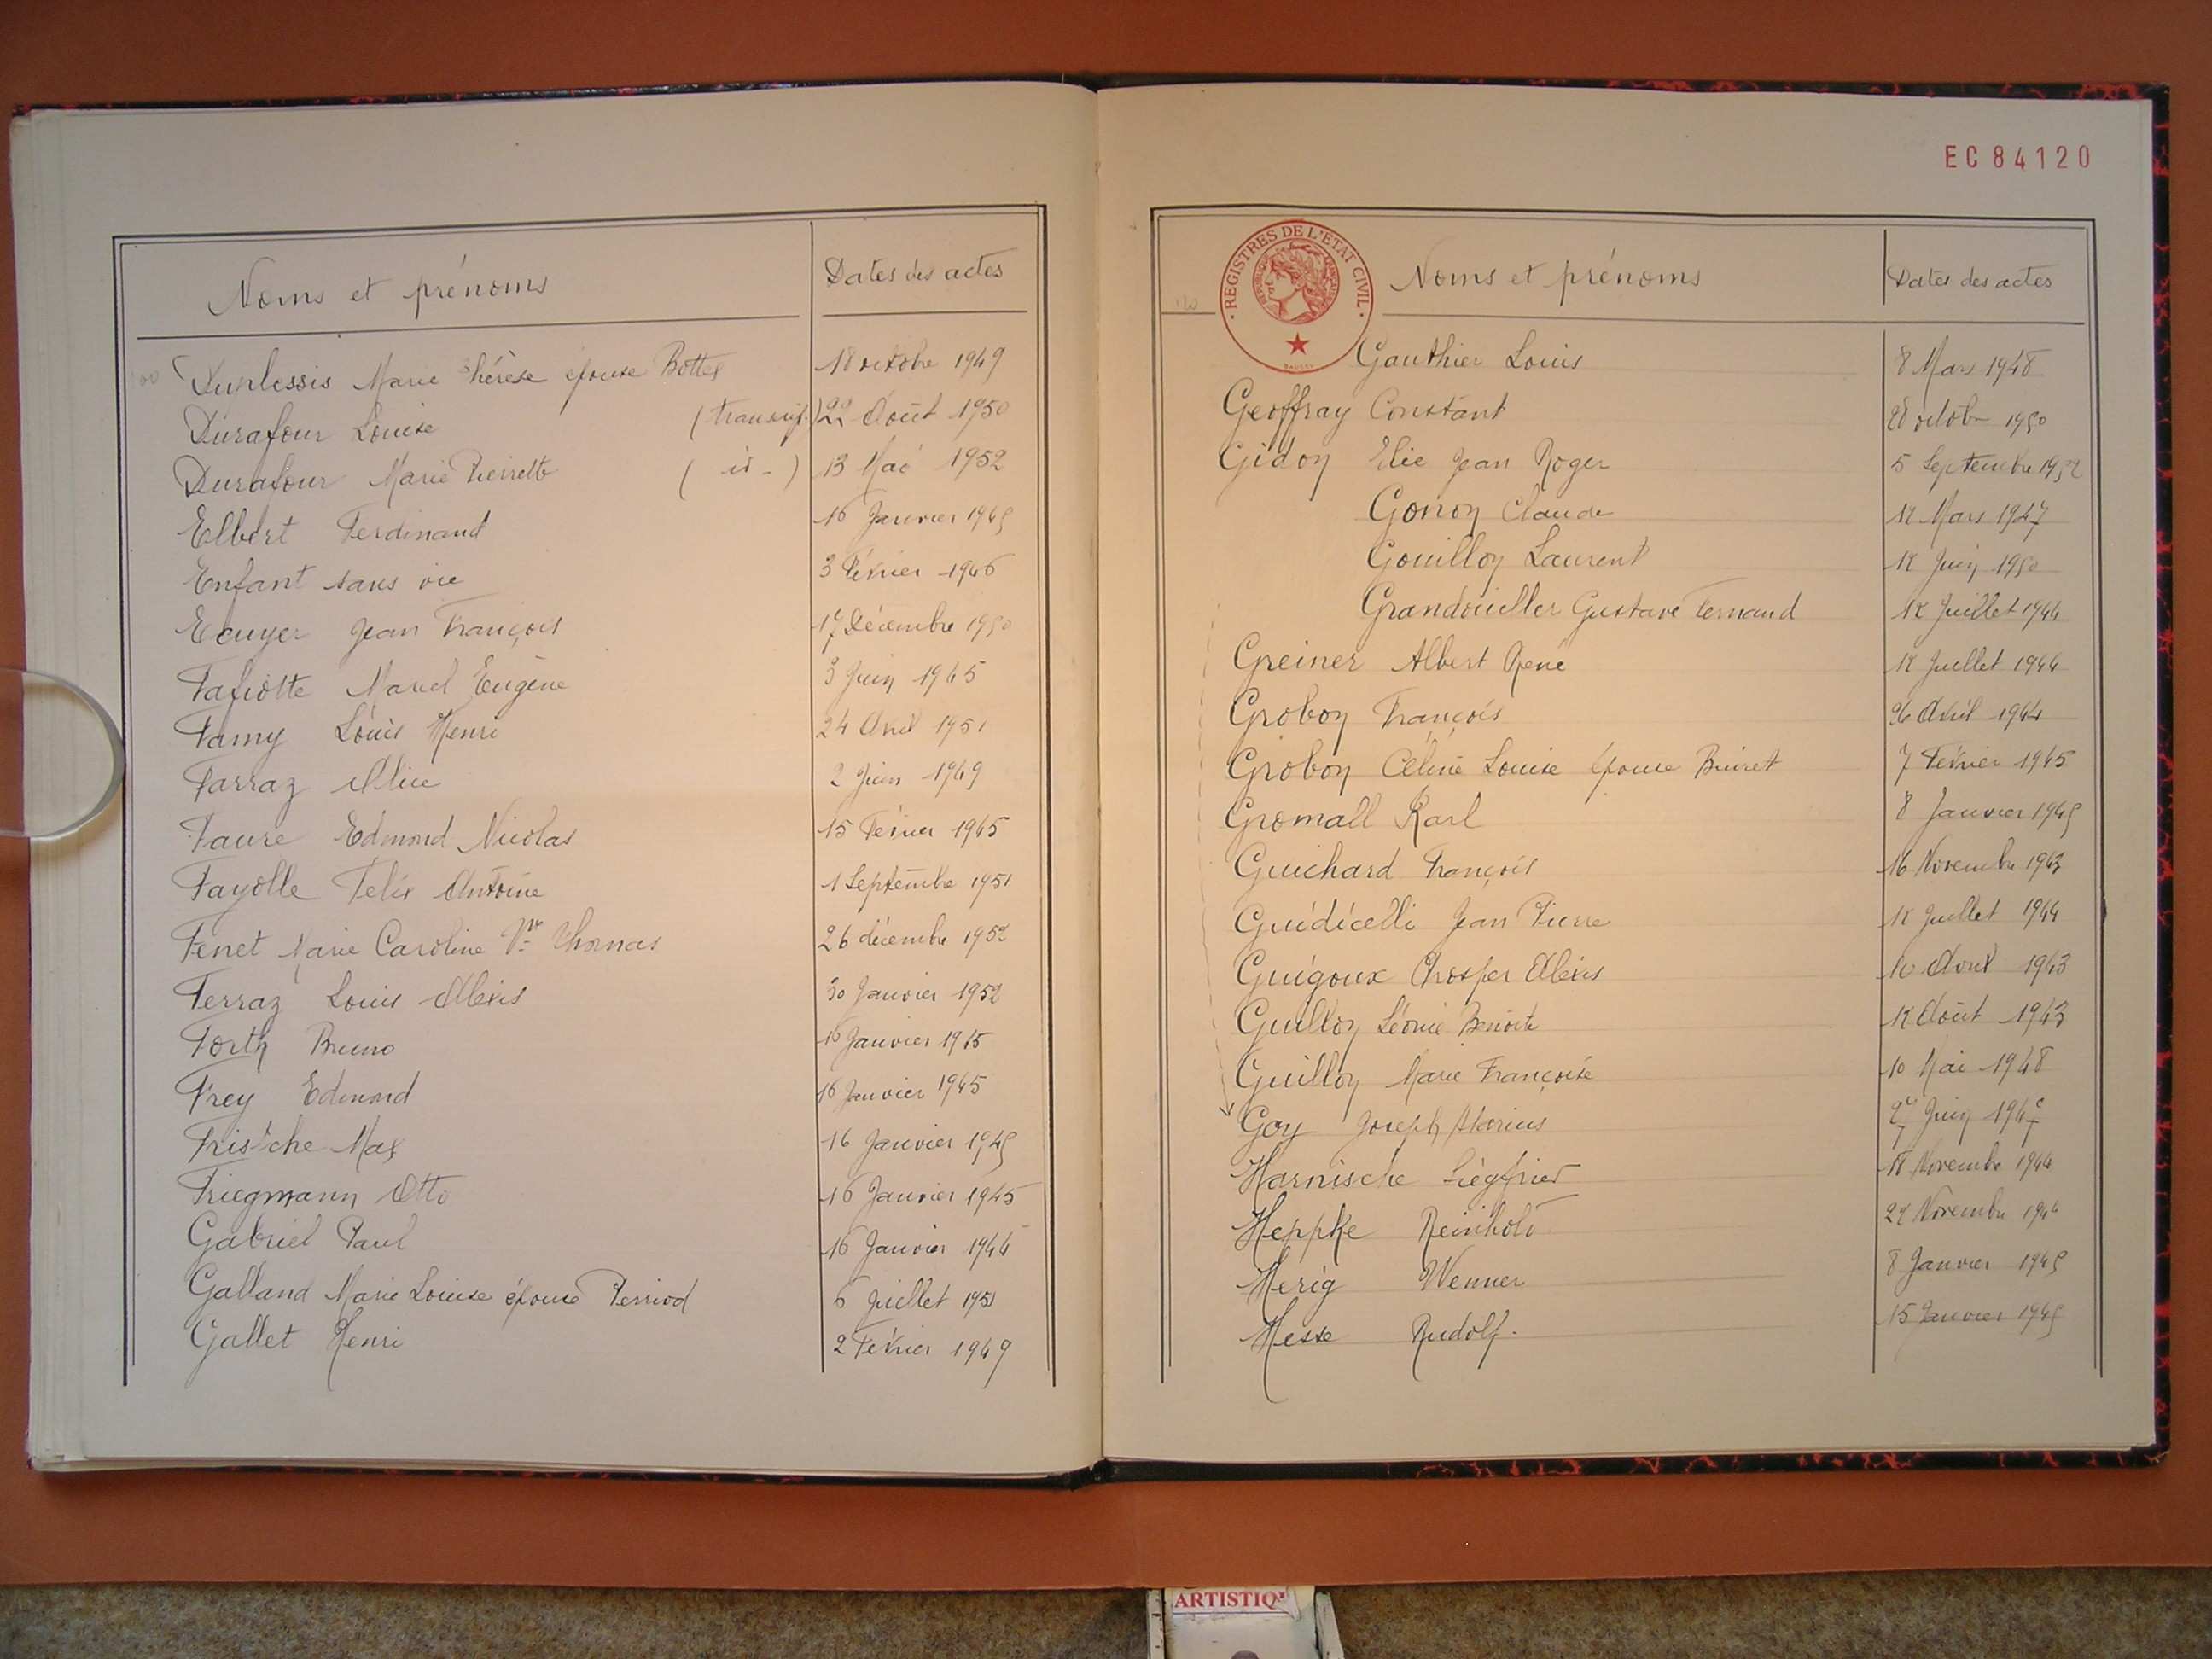 Noms et prénoms Dates des actes
Duplessis Marie Thérèse épouse Bottex 18 octobre 1949
Durafour Louise (transcript.) 22 Août 1950
Durafour Marie Pierrette ( id - ) 13 Mai 1952
Elbert Ferdinand 16 Janvier 1945
Enfant sans vie 3 Février 1946
Ecuyer Jean François 17 Décembre 1950
Fafiotte Marcel Eugène 3 Juin 1945
Famy Louis Henri 24 Avril 1951
Farraz Alice 2 Juin 1949
Faure Edmond Nicolas 15 Février 1945
Fayolle Félix Antoine 1 Septembre 1951
Fenet Marie Caroline Vve Thomas 26 décembre 1952
Ferraz Louis Alexis 30 Janvier 1952
Forth Bruno 16 Janvier 1945
Frey Edmond 16 Janvier 1945
Frische Max 16 Janvier 1945
Friegmann Otto 16 Janvier 1945
Gabriel Paul 16 Janvier 1944
Galland Marie Louise épouse Perriod 6 Juillet 1951
Gallet Henri 2 Février 1949
EC84120
REGISTRES DE L'ÉTAT CIVIL
Noms et prénoms Dates des actes
Gauthier Louis 8 Mars 1948
Geoffray Constant 28 octobre 1950
Gidon Elie Jean Roger 5 Septembre 1952
Gonon Claude 12 Mars 1947
Gouillon Laurent 12 Juin 1950
Grandouiller Gustave Fernand 12 Juillet 1944
Greiner Albert René 12 Juillet 1944
Grobon François 26 Avril 1944
Grobon Céline Louise épouse Buiret 7 Février 1945
Gromall Karl 8 Janvier 1945
Guichard François 16 Novembre 1943
Guidicelli Jean Pierre 12 Juillet 1944
Guigoux Prosper Alexis 10 Avril 1943
Guillon Léonie Benoite 12 Août 1943
Guillon Marie Françoise 10 Mai 1948
Goy Joseph Marius 27 Juin 1947
Harnische Siegfried 18 Novembre 1944
Heppke Reinhold 22 Novembre 1944
Herig Wenner 8 Janvier 1945
Hesse Rudolf. 15 Janvier 1945
ARTISTIQ